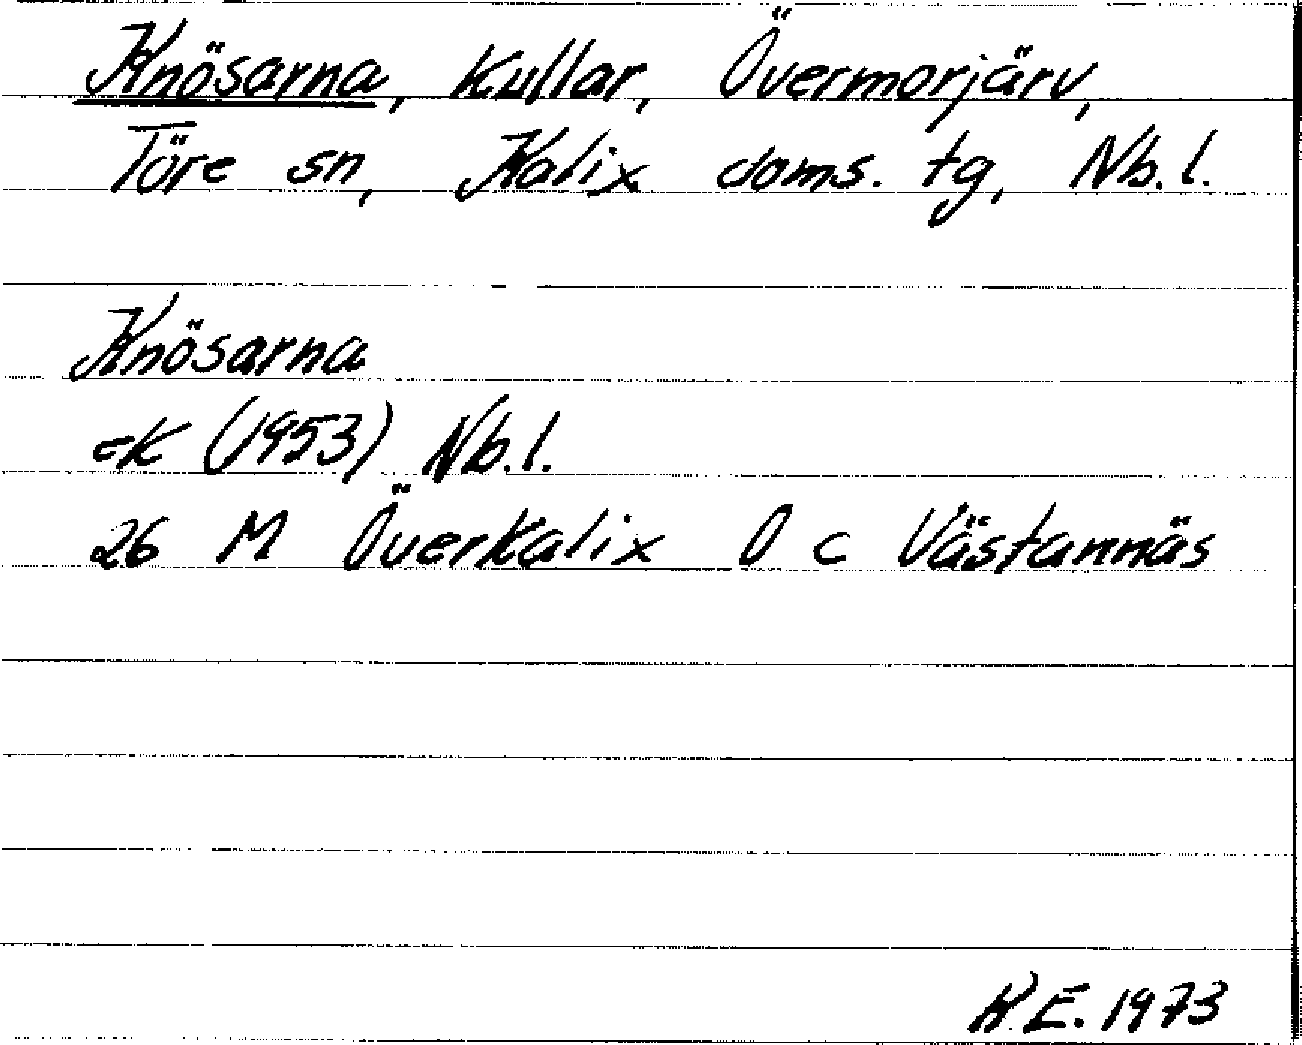 Knösarna, kullar, Övermorjärv,
Töre sn, Kalix doms. tg, Nb. l.
Knösarna
ek (1953) Nb. l.
26 M Överkalix O c Västannäs
K.E. 1973